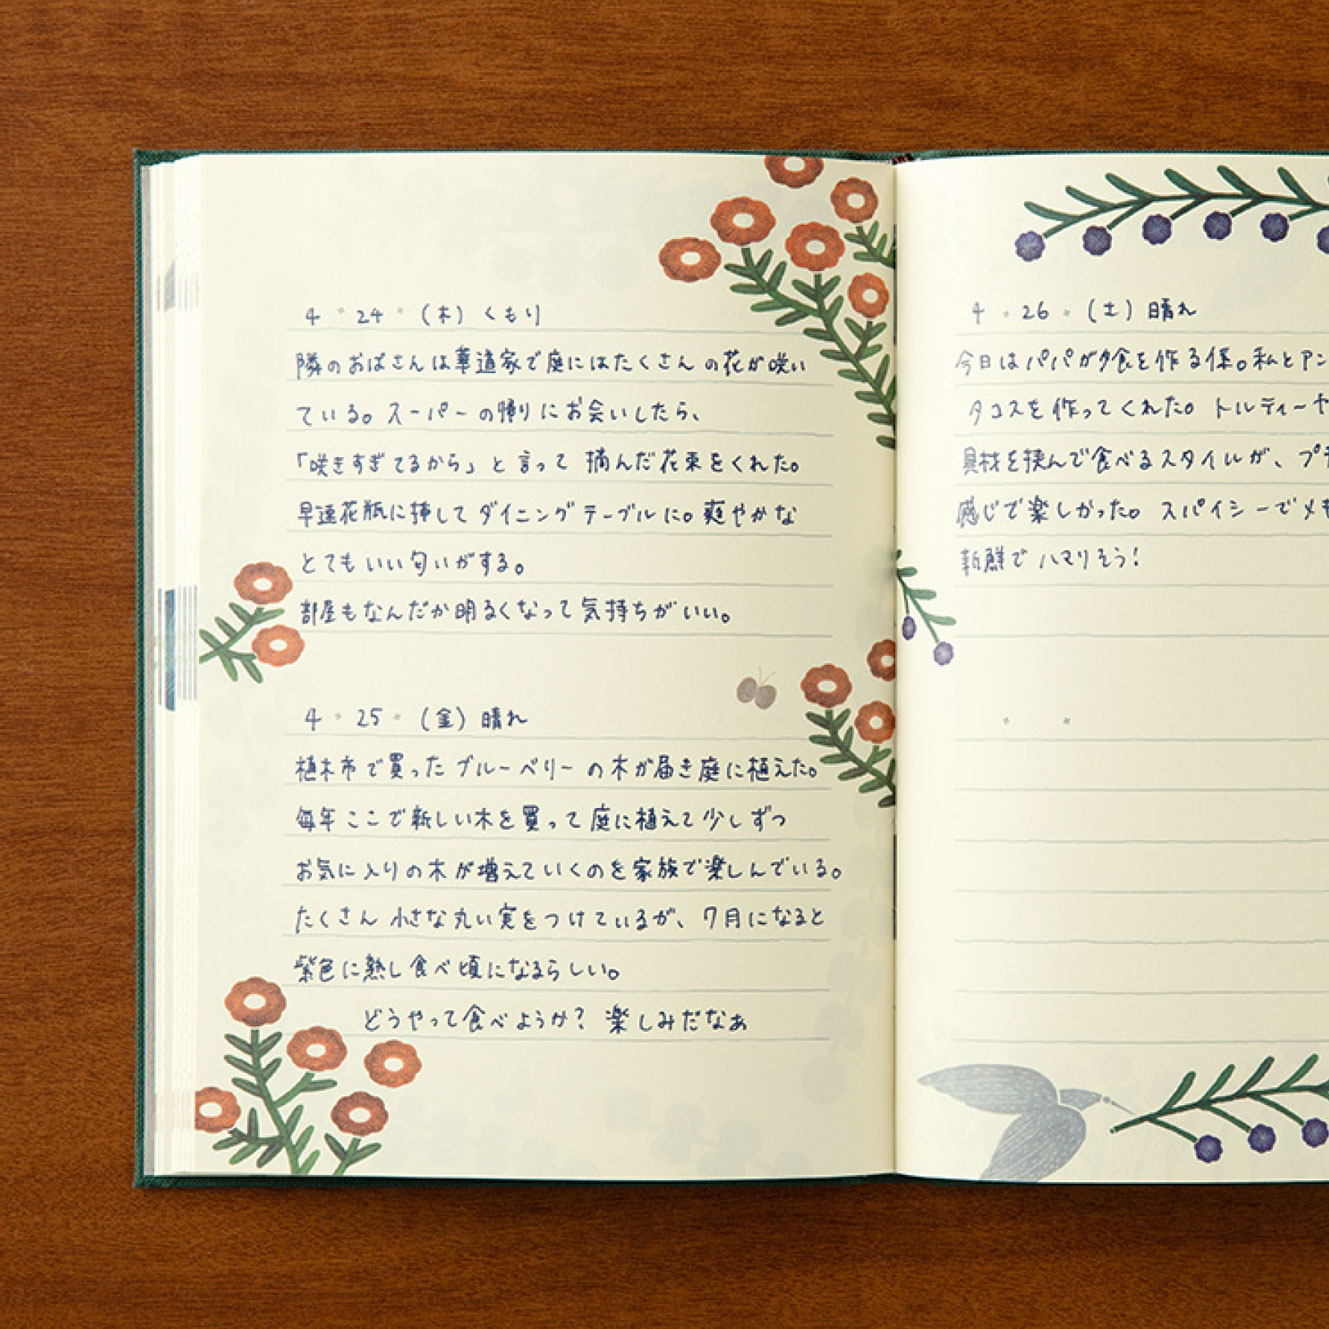 4 24 (木) くもり
隣のおばさんは華道家で庭にはたくさんの花が咲い
ている。スーパーの帰りにお会いしたら、
「咲きすぎてるから」と言って 摘んだ花束をくれた。
早速花瓶に挿してダイニングテーブルに。爽やかな
とてもいい匂いがする。
部屋もなんだか明るくなって気持ちがいい。
4 25 (金) 晴れ
植木市で買ったブルーベリーの木が届き庭に植えた。
毎年ここで新しい木を買って庭に植えて少しずつ
お気に入りの木が増えていくのを家族で楽しんでいる。
たくさん小さな丸い実をつけているが、7月になると
紫色に熟し食べ頃になるらしい。
どうやって食べようか? 楽しみだなぁ
4 26 (土) 晴れ
今日はパパが夕食を作る係。私とアン
タコスを作ってくれた。トルティーヤ
具材を挟んで食べるスタイルが、プチ
感じで楽しかった。スパイシーでメキ
新鮮でハマりそう!